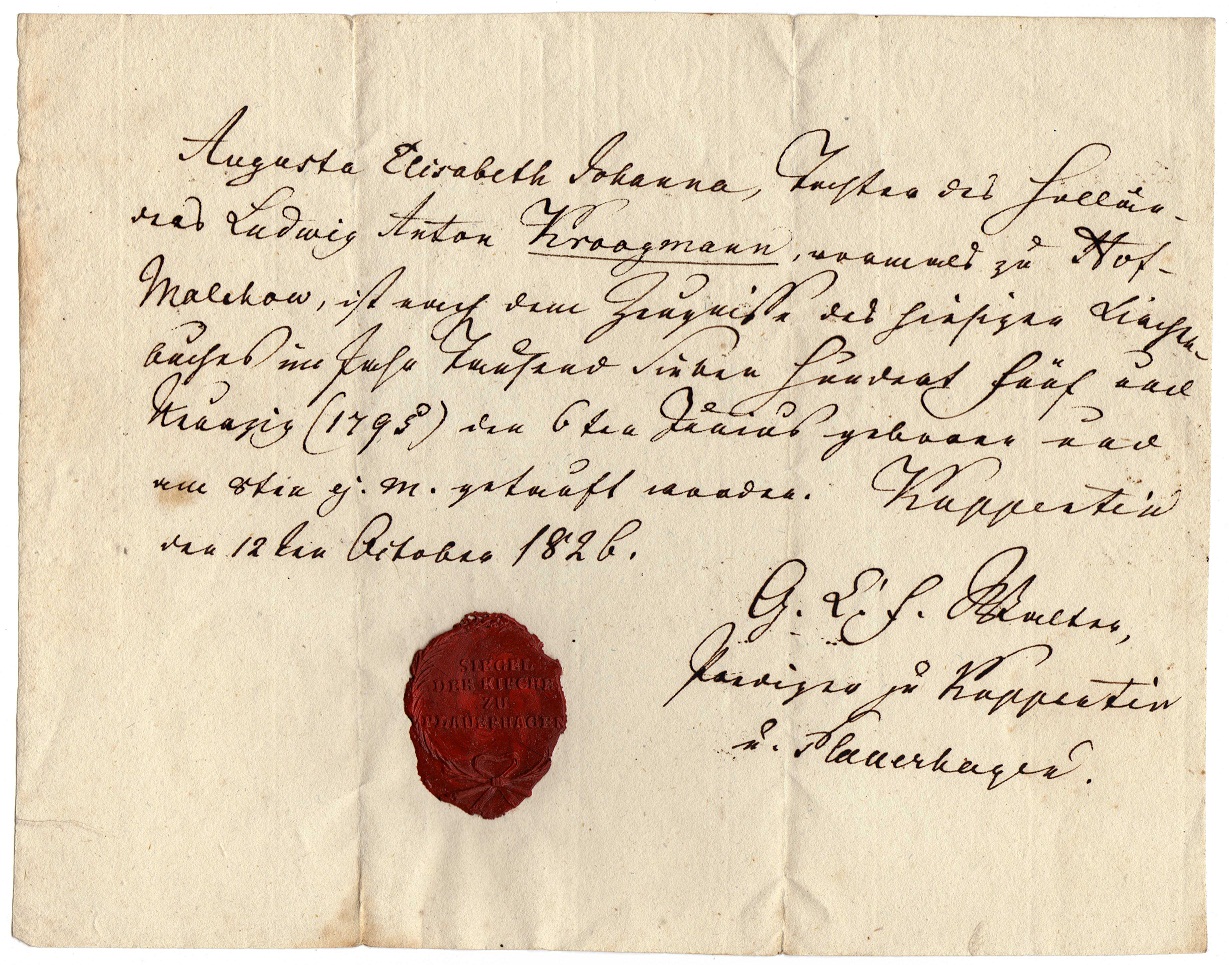 Augusta Elisabeth Johanna, Tochter des Hollän-
ders Ludwig Anton Kroogmann, vormals zu Hof-
Malchow, ist nach dem Zeugnisse des hiesigen Kirchen-
buches im Jahr Tausend Sieben Hundert fünf und
Neunzig (1795) den 6ten Junius geboren und
am 8ten ej. m. getauft worden. Kuppentin
den 12ten October 1826.
G. L. F. Walter,
Prediger zu Kuppentin
u. Plauerhagen.
SIEGEL
DER KIRCHE
ZU
PLAUERHAGEN